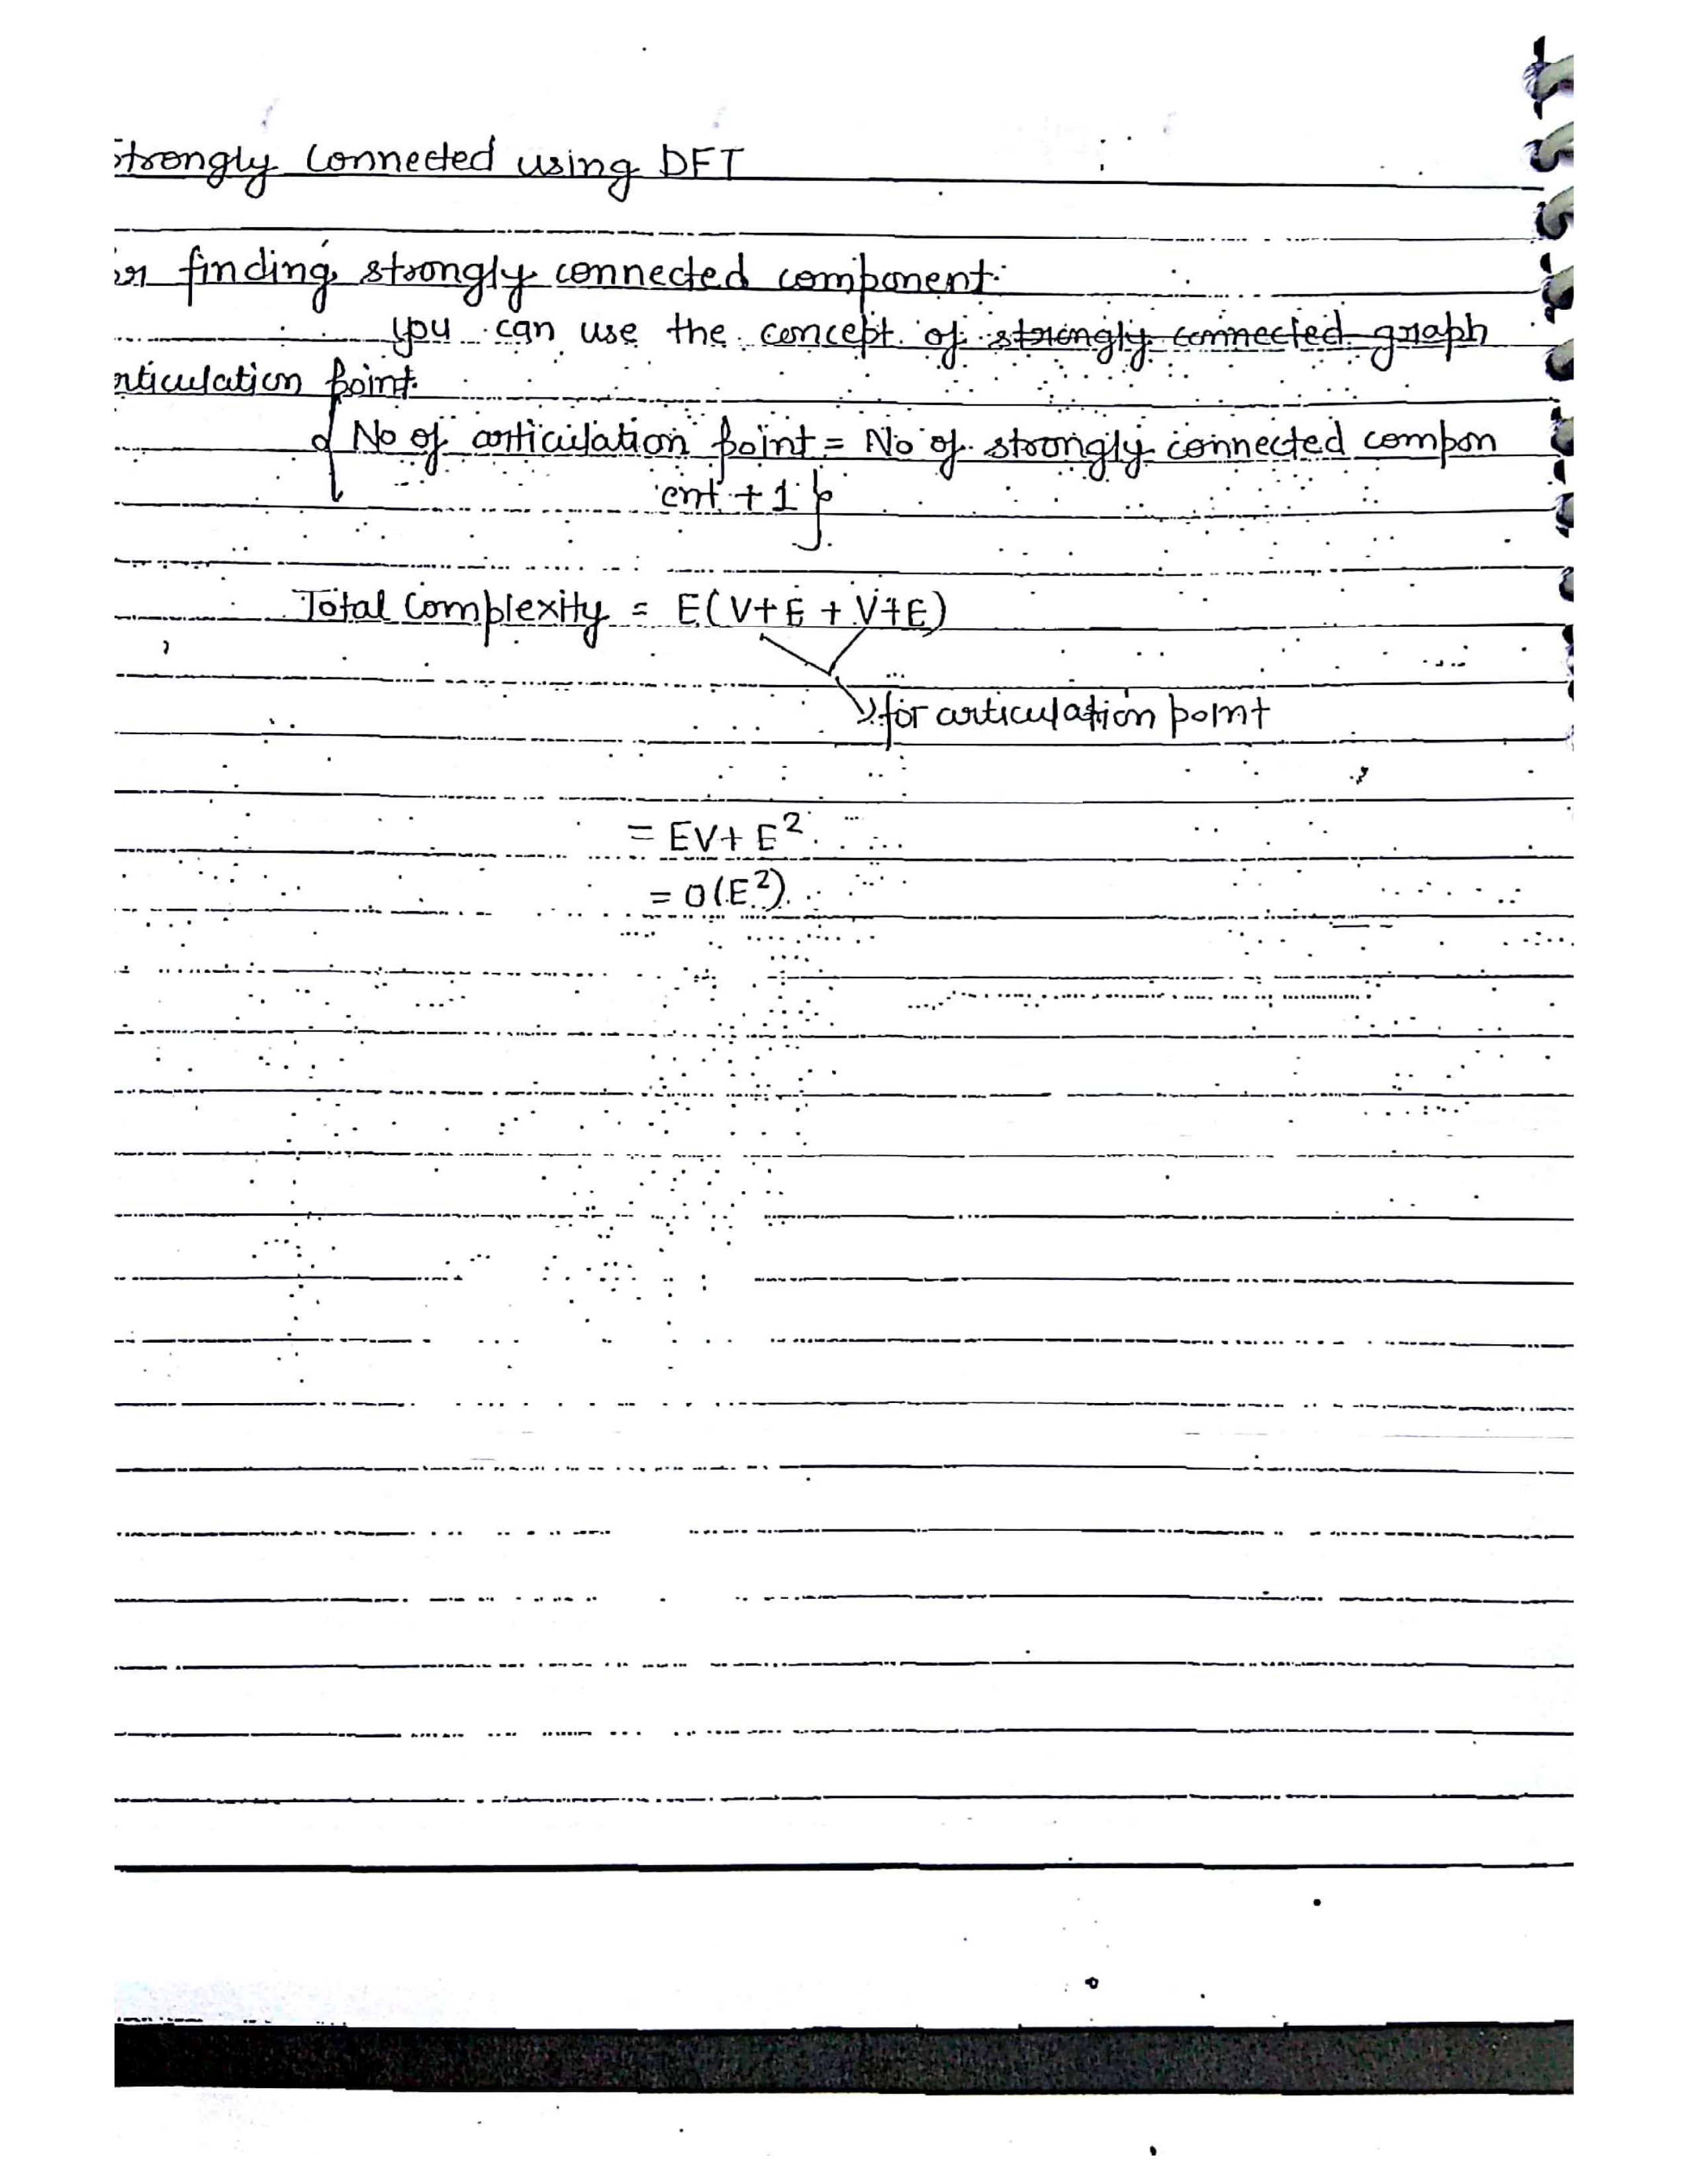 Strongly Connected using DFT
finding strongly connected component:
you can use the concept of strongly connected graph
articulation point.
{ No of articulation point = No of strongly connected compon
ent + 1 }
Total Complexity = E(V+E + V+E)
for articulation point
= EV + E²
= O(E²)